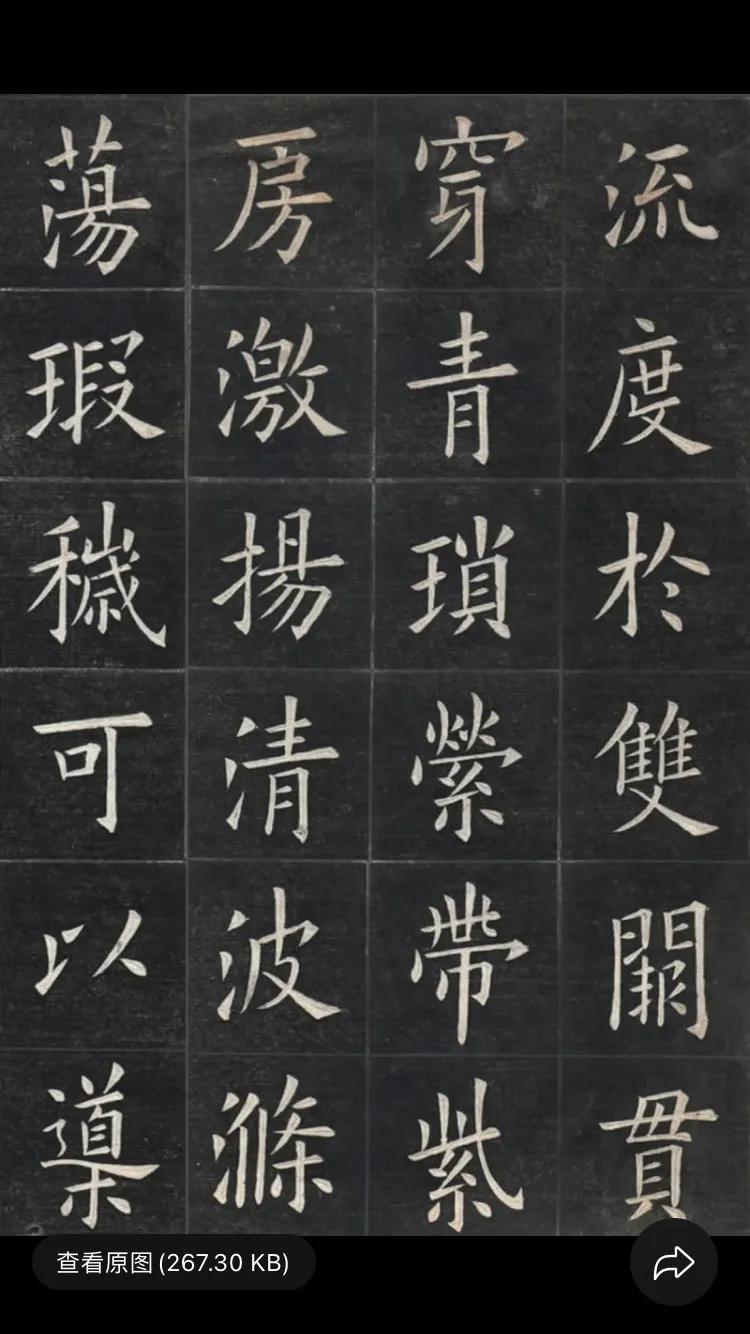 流度於雙闕貫
穿青瑣縈帶紫
房激揚清波滌
蕩瑕穢可以導
查看原图(267.30 KB)